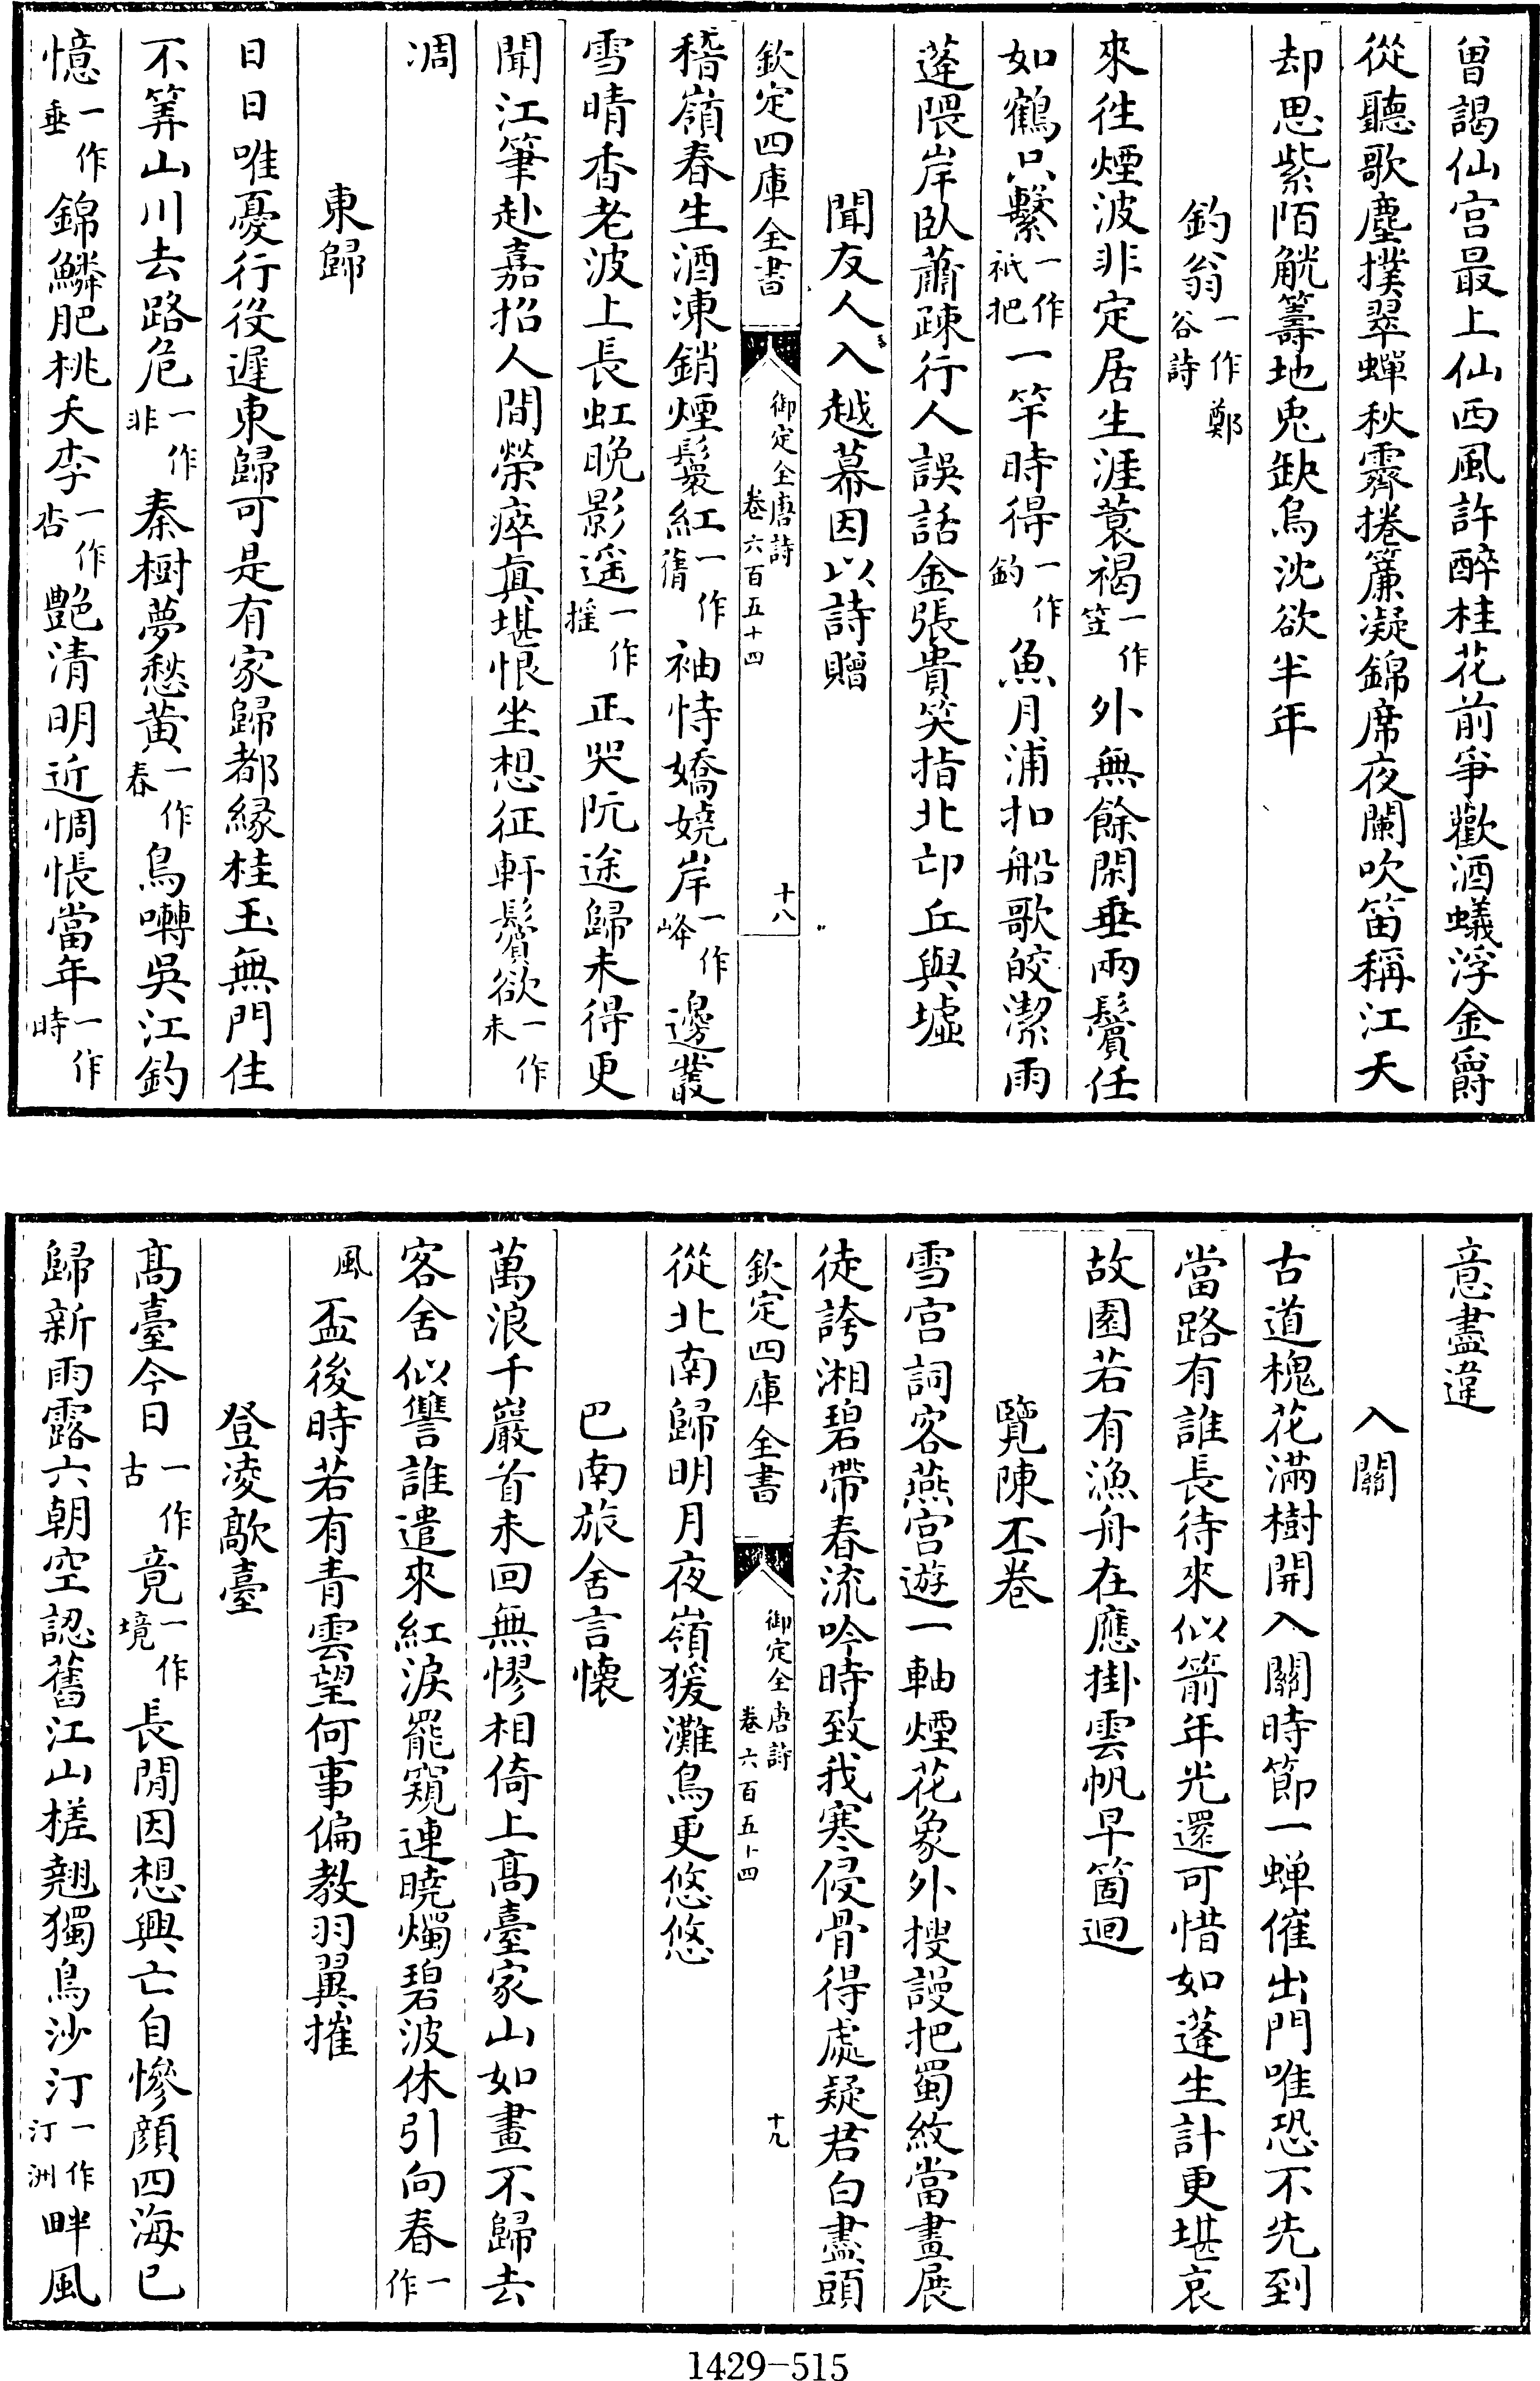 曽謁仙宫最上仙西風許醉桂花前爭歡酒蟻浮金爵
從聽歌塵撲翠蟬秋霽捲簾凝錦席夜闌吹笛稱江天
却思紫陌觥籌地兎缺烏沈欲半年
釣翁一作鄭谷詩
來徃煙波非定居生涯蓑褐一作笠外無餘閑垂兩鬢任
如鶴只繫一作祇把一竿時得一作釣魚月浦扣船歌皎潔雨
蓬隈岸臥蕭疎行人誤話金張貴笑指北邙丘與墟
聞友人入越幕因以詩贈
欽定四庫全書
御定全唐詩
卷六百五十四
十八
稽嶺春生酒凍銷煙鬟紅一作蒨袖恃嬌嬈岸一作峰邊叢
雪晴香老波上長虹晚影遥一作摇正哭阮途歸未得更
聞江筆赴嘉招人間榮瘁真堪恨坐想征軒鬢欲一作未
凋
東歸
日日唯憂行役遲東歸可是有家歸都緣桂玉無門住
不筭山川去路危一作非秦樹夢愁黄一作春鳥囀吳江釣
憶一作垂錦鱗肥桃夭李一作杏艶清明近惆悵當年一作時
意盡違
入關
古道槐花滿樹開入關時節一蟬催出門唯恐不先到
當路有誰長待來似箭年光還可惜如蓬生計更堪哀
故園若有漁舟在應掛雲帆早箇迴
覽陳丕卷
雪宫詞客燕宫遊一軸煙花象外搜謾把蜀紋當畫展
徒誇湘碧帶春流吟時致我寒侵骨得處疑君白盡頭
欽定四庫全書
御定全唐詩
卷六百五十四
十九
從北南歸明月夜嶺猨灘鳥更悠悠
巴南旅舍言懷
萬浪千巖首未回無憀相倚上髙臺家山如畫不歸去
客舍似讐誰遣來紅淚罷窺連曉燭碧波休引向春一作
風盃後時若有青雲望何事偏教羽翼摧
登凌歊臺
髙臺今日一作古竟一作境長閒因想興亡自慘顔四海已
歸新雨露六朝空認舊江山槎翹獨鳥沙汀一作汀洲畔風
1429-515